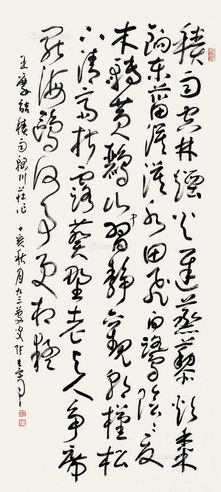 積雨空林煙火遲蒸藜炊黍
餉東菑漠漠水田飛白鷺陰陰夏
木囀黃鸝山中習靜觀朝槿松
下清齋折露葵野老與人爭席
罷海鷗何事更相疑
王摩詰積雨輞川莊作 亥秋月九三叟